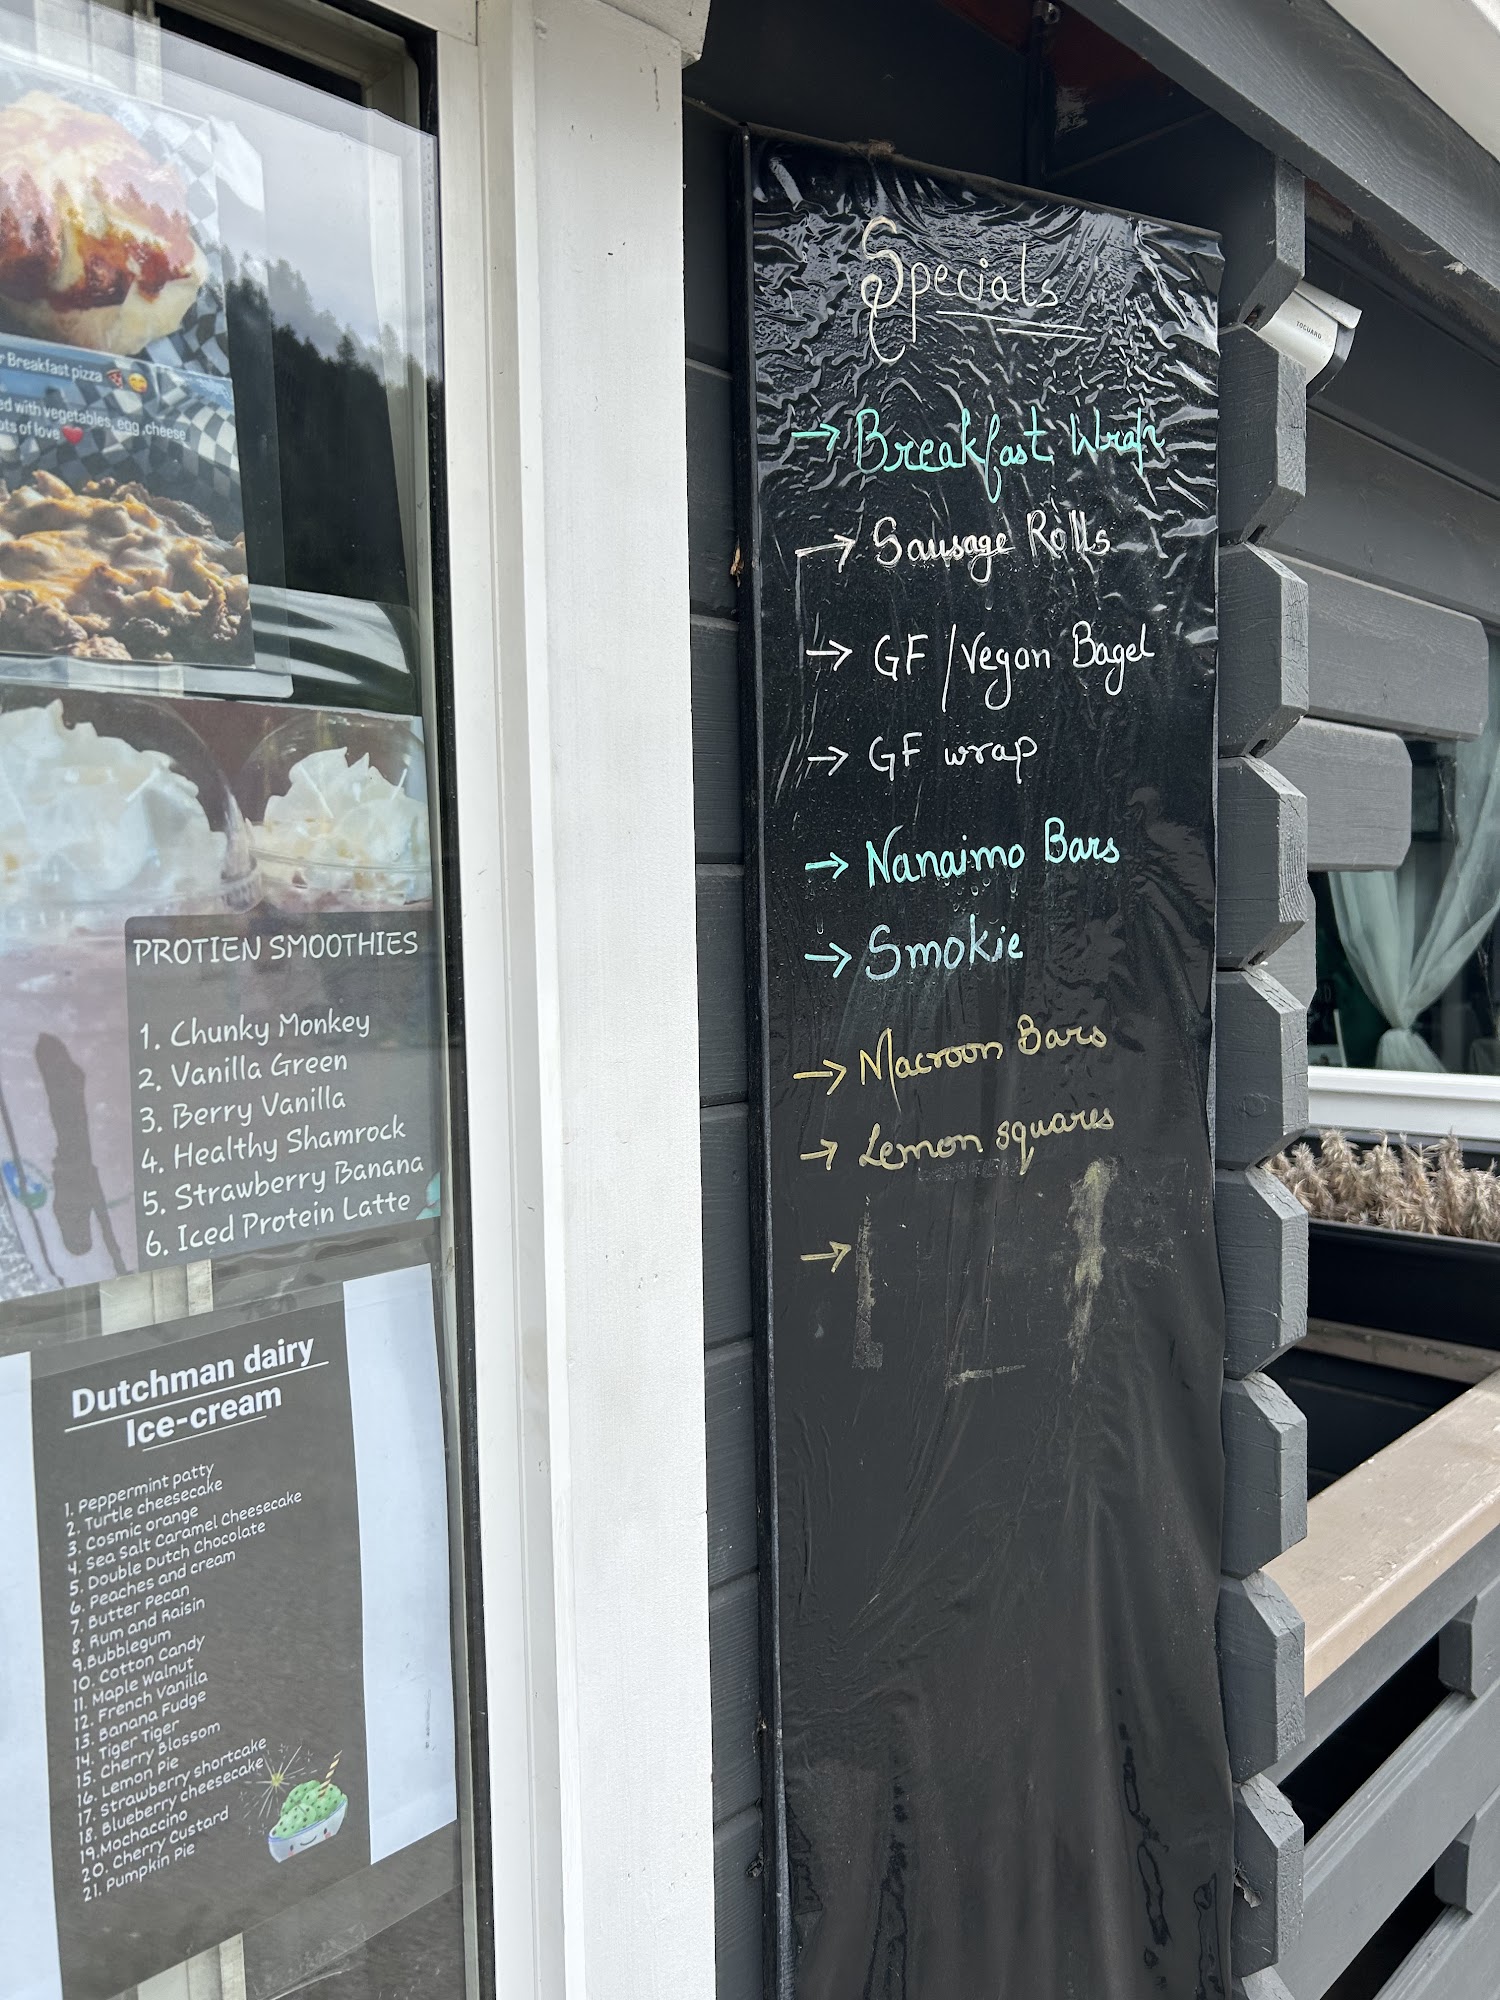 r Breakfast pizza
ed with vegetables, egg ,cheese
ots of love
PROTIEN SMOOTHIES
1. Chunky Monkey
2. Vanilla Green
3. Berry Vanilla
4. Healthy Shamrock
5. Strawberry Banana
6. Iced Protein Latte
Dutchman dairy
Ice-cream
1. Peppermint patty
2. Turtle cheesecake
3. Cosmic orange
4. Sea Salt Caramel Cheesecake
5. Double Dutch Chocolate
6. Peaches and cream
7. Butter Pecan
8. Rum and Raisin
9.Bubblegum
10. Cotton Candy
11. Maple Walnut
12. French Vanilla
13. Banana Fudge
14. Tiger Tiger
15. Cherry Blossom
16. Lemon Pie
17. Strawberry shortcake
18. Blueberry cheesecake
19.Mochaccino
20. Cherry Custard
21. Pumpkin Pie
Specials
→ Breakfast Wrap
→ Sausage Rolls
→ GF / Vegan Bagel
→ GF wrap
→ Nanaimo Bars
→ Smokie
→ Macroon Bars
→ Lemon squares
→
TOGUARD